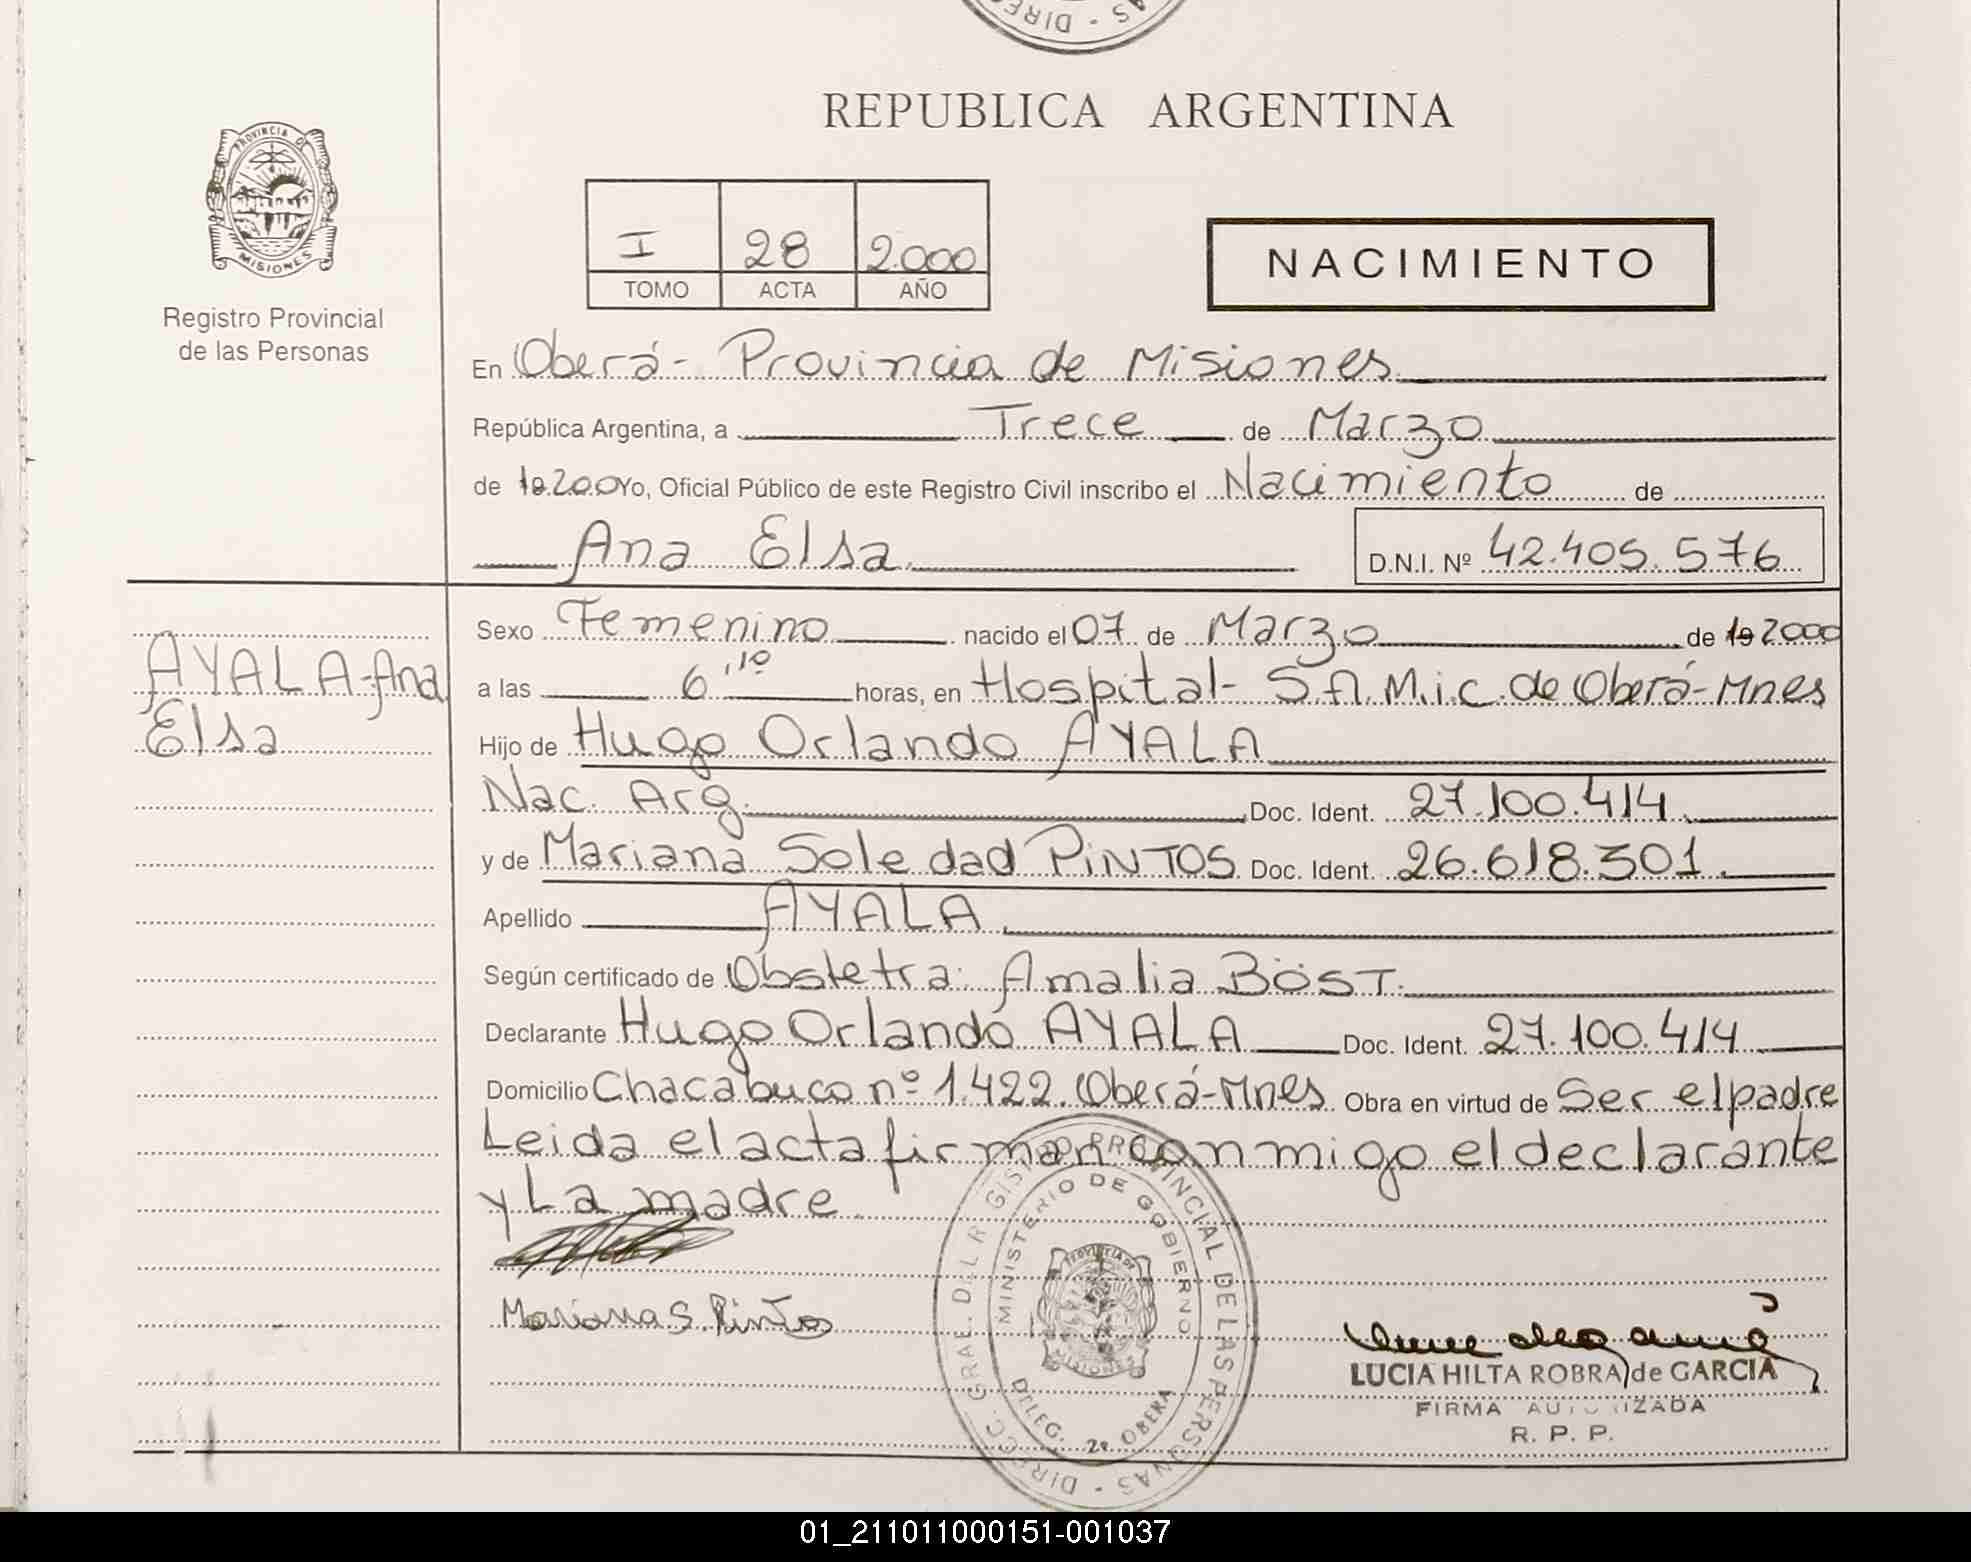 REPUBLICA ARGENTINA
PROVINCIA DE
MISIONES
Registro Provincial
de las Personas
I 28 2.000
TOMO ACTA AÑO
NACIMIENTO
En Oberá - Provincia de Misiones
República Argentina, a Trece de Marzo
de 19 200 Yo, Oficial Público de este Registro Civil inscribo el Nacimiento de
Ana Elsa
D.N.I. Nº 42.405.576
AYALA - Ana
Elsa
Sexo Femenino nacido el 07 de Marzo de 19 2000
a las 6,10 horas, en Hospital - S.A.M.i.c. de Oberá - Mnes
Hijo de Hugo Orlando AYALA
Nac. Arg. Doc. Ident. 27.100.414
y de Mariana Soledad PINTOS Doc. Ident. 26.618.301
Apellido AYALA
Según certificado de Obstetra: Amalia BÖST.
Declarante Hugo Orlando AYALA Doc. Ident. 27.100.414
Domicilio Chacabuco nº 1.422. Oberá - Mnes Obra en virtud de Ser el padre
Leida el acta firman conmigo el declarante
y La madre
Mariana S. Pintos
DIRECC. GRAL. DEL REGISTRO PROVINCIAL DE LAS PERSONAS
MINISTERIO DE GOBIERNO
PROVINCIA DE
MISIONES
DELEG. 2ª OBERA
LUCIA HILTA ROBRA de GARCIA
FIRMA AUTORIZADA
R. P. P.
01_211011000151-001037